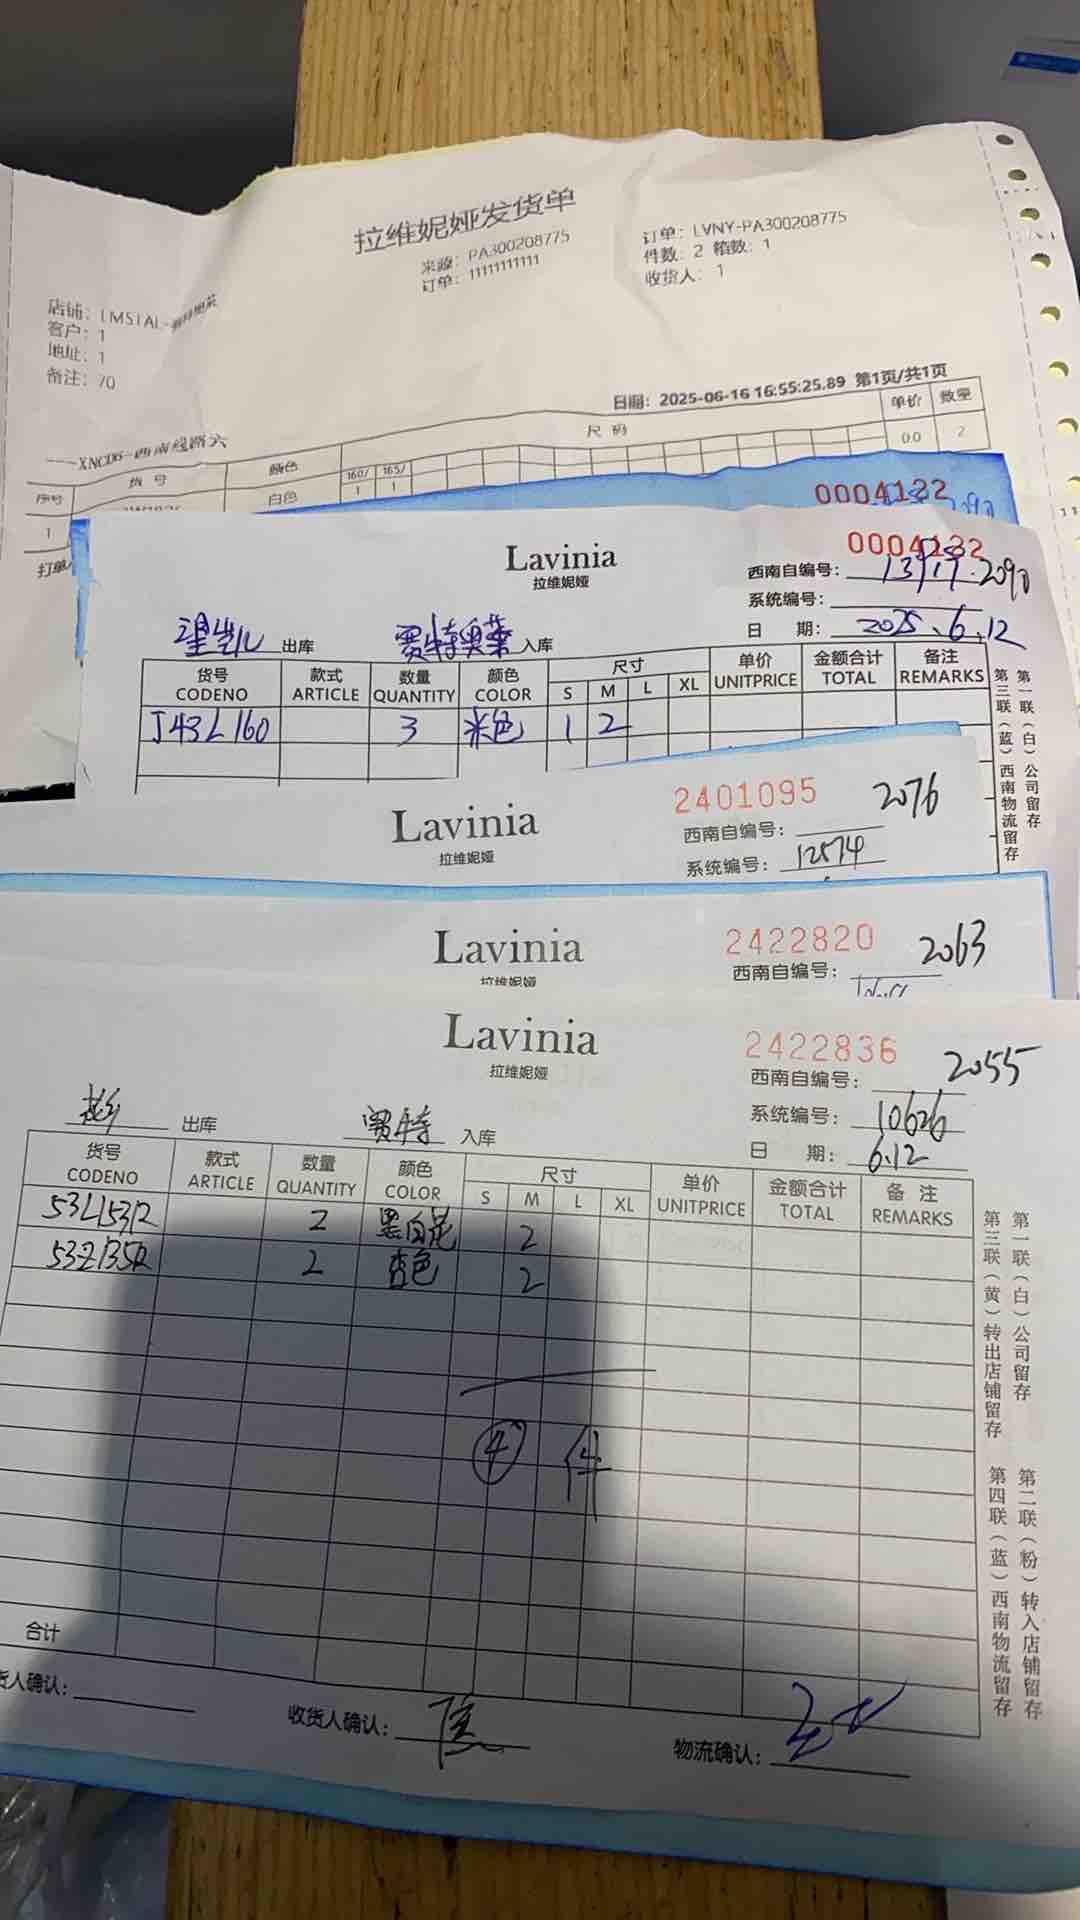 拉维妮娅发货单
来源：PA300208775
订单：11111111111
订单：LVNY-PA300208775
件数：2 箱数：1
收货人：1
店铺：
客户：1
地址：1
备注：70
日期：2025-06-16 16:55:25.89 第1页/共1页
——XNCD6-西南线路六
序号 货号 颜色 尺码 单价 数量
160/ 165/
1 白色 1 1 0.0 2
0004132
0004132
Lavinia
拉维妮娅
西南自编号： 2090
系统编号：
日 期：2025、6、12
望凯 出库 赛特奥莱 入库
货号 款式 数量 颜色 尺寸 单价 金额合计 备注
CODENO ARTICLE QUANTITY COLOR S M L XL UNITPRICE TOTAL REMARKS
J43L160 3 米色 1 2
第一联（白）公司留存
第三联（蓝）西南物流留存
Lavinia
拉维妮娅
2401095 2076
西南自编号：
系统编号：12574
Lavinia
拉维妮娅
2422820 2063
西南自编号：
Lavinia
拉维妮娅
2422836 2055
西南自编号：
系统编号：10626
日 期：6.12
出库 赛特 入库
货号 款式 数量 颜色 尺寸 单价 金额合计 备注
CODENO ARTICLE QUANTITY COLOR S M L XL UNITPRICE TOTAL REMARKS
2 黑白花 2
2 杏色 2
④ 件
合计
收货人确认：
物流确认：
第一联（白）公司留存
第二联（粉）转入店铺留存
第三联（黄）转出店铺留存
第四联（蓝）西南物流留存